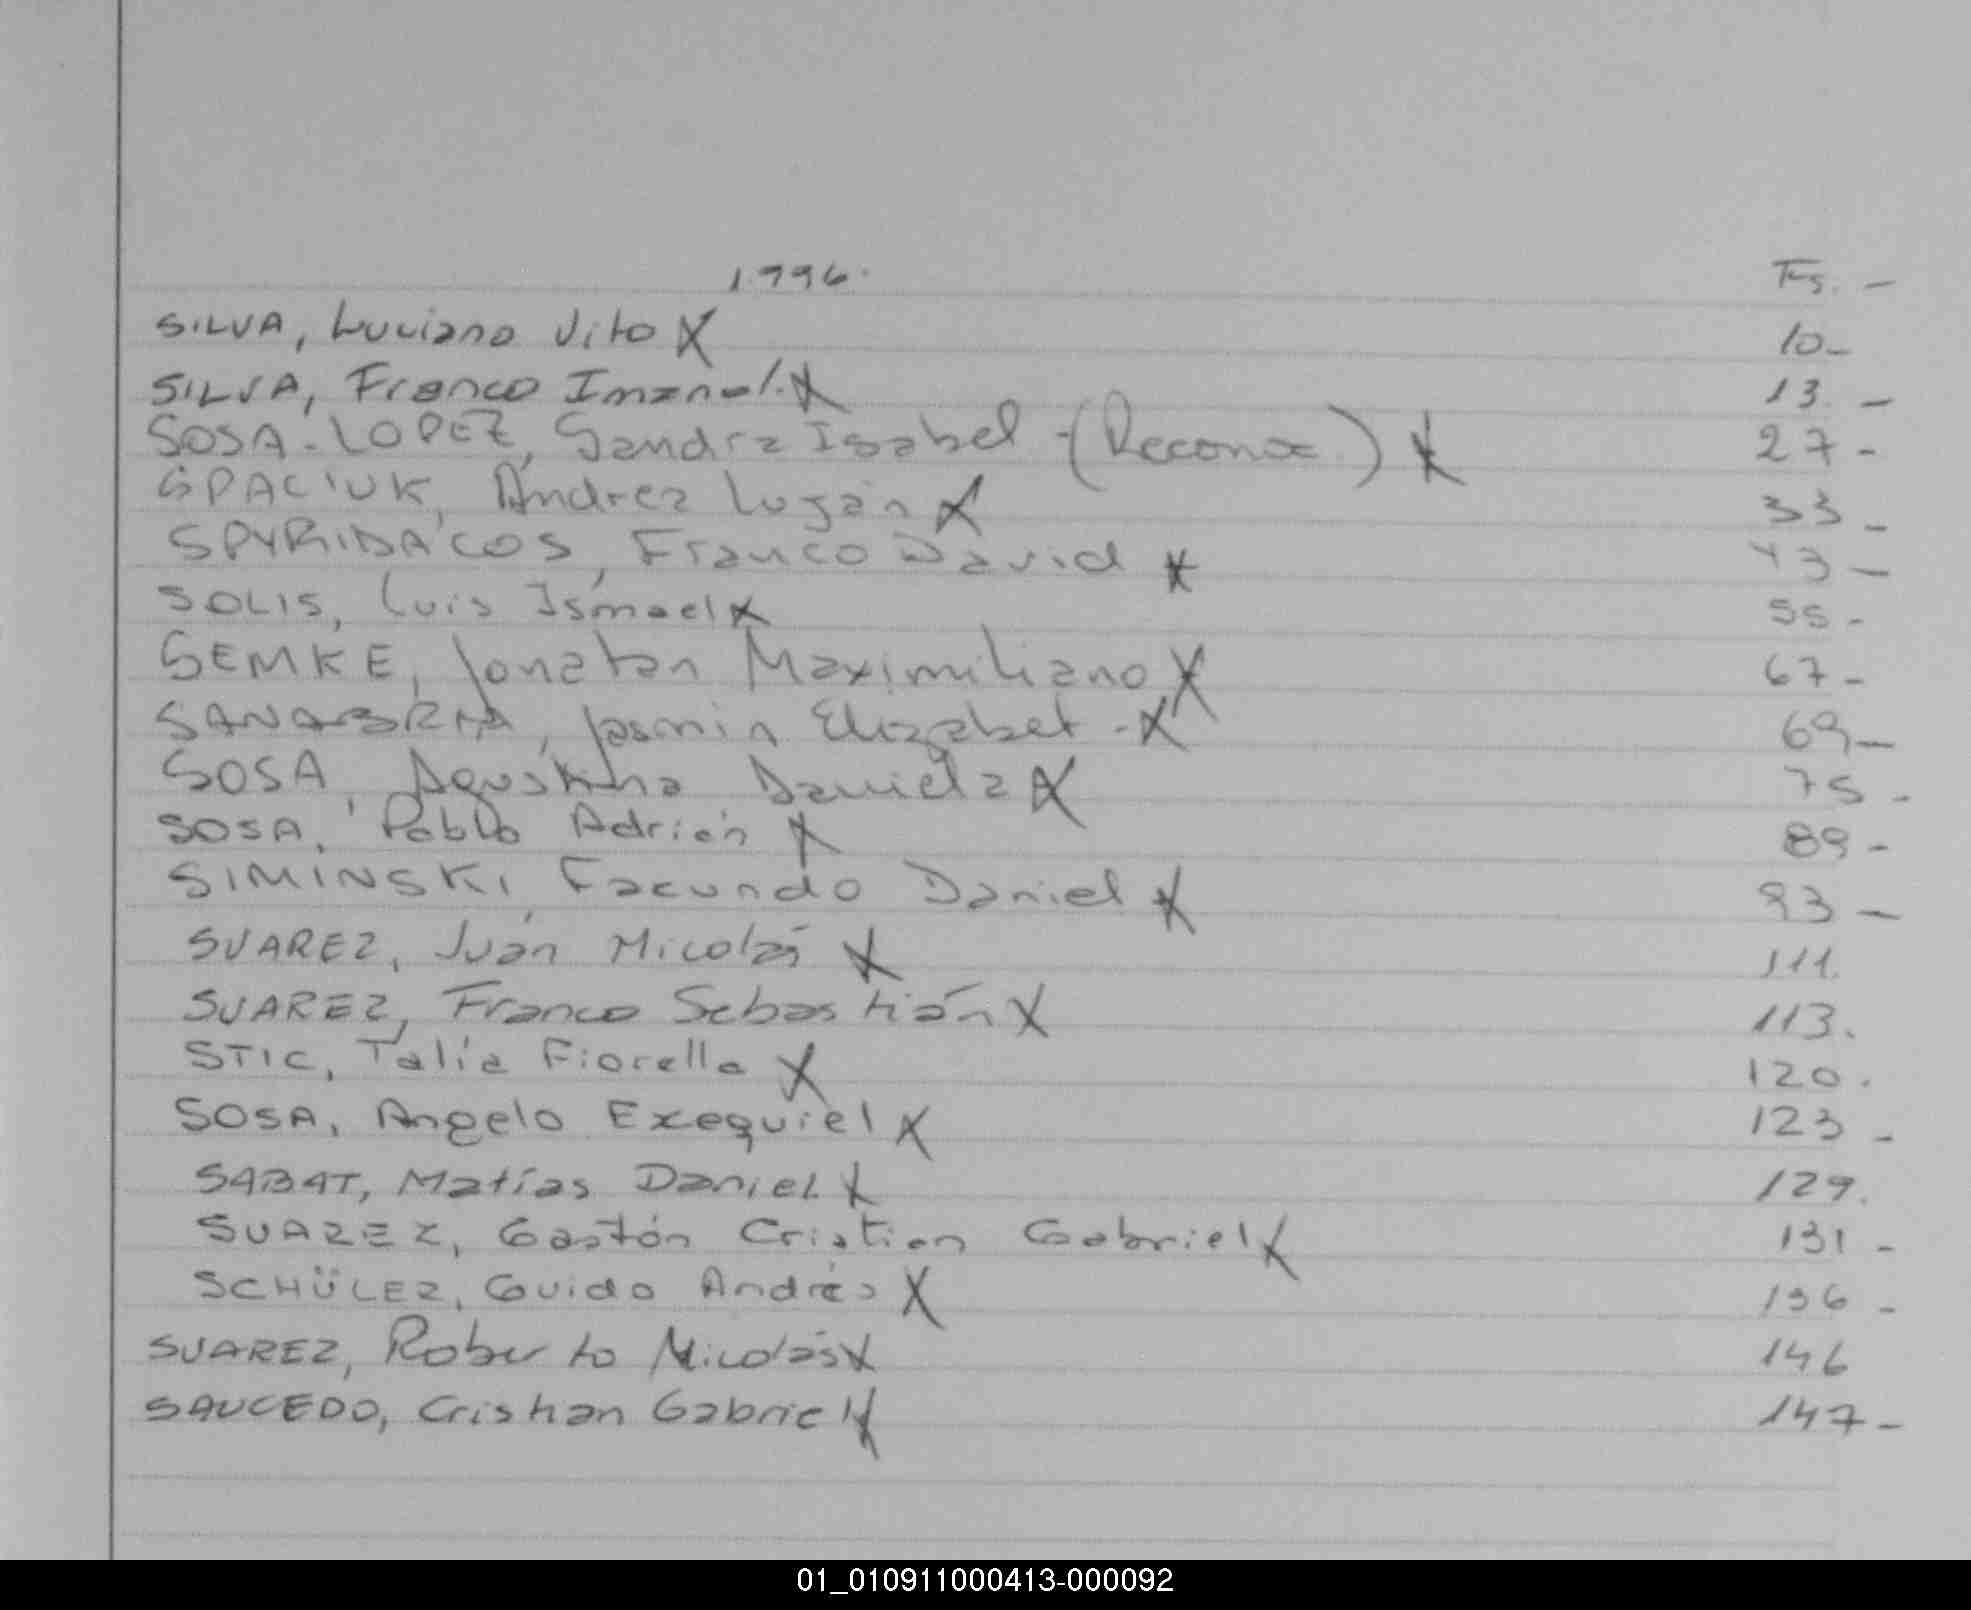 1.996. Fs. -
SILVA, Luciano Vito X 10-
SILVA, Franco Imanol. X 13. -
SOSA-LOPEZ, Sandra Isabel - (Reconoc.) X 27-
SPACIUK, Andrea Luján X 33 -
SPYRIDACOS, Franco David X 43 -
SOLIS, Luis Ismael X 55-
SEMKE, Jonatan Maximiliano X 67-
SANABRIA, Jasmin Elizabet - X 69-
SOSA, Agustina Daniela X 75 -
SOSA, Pablo Adrián X 89-
SIMINSKI, Facundo Daniel X 93 -
SUAREZ, Juán Nicolás X 111.
SUAREZ, Franco Sebastián X 113.
STIC, Talía Fiorella X 120.
SOSA, Angelo Exequiel X 123 -
SABAT, Matías Daniel X 129.
SUAREZ, Gastón Cristian Gabriel X 131 -
SCHÜLER, Guido Andrés X 136 -
SUAREZ, Roberto Nicolás X 146
SAUCEDO, Cristian Gabriel X 147-
01_010911000413-000092